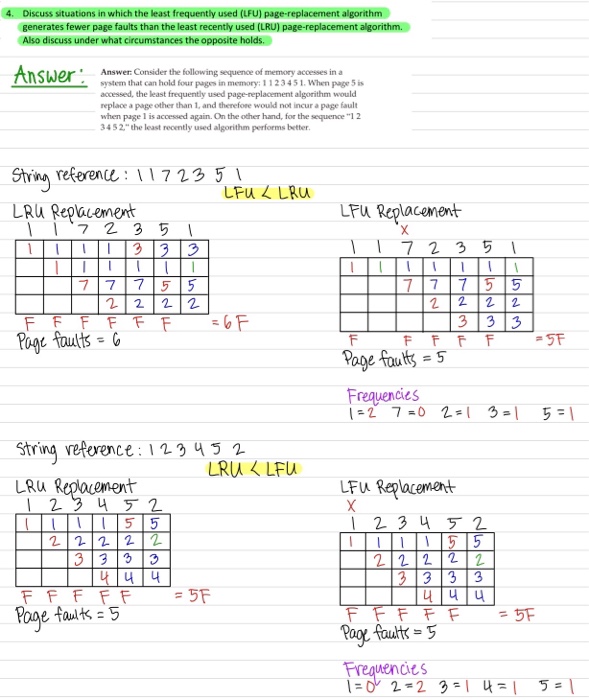 4. Discuss situations in which the least frequently used (LFU) page-replacement algorithm
generates fewer page faults than the least recently used (LRU) page-replacement algorithm.
Also discuss under what circumstances the opposite holds.
Answer:
Answer: Consider the following sequence of memory accesses in a
system that can hold four pages in memory: 1 1 2 3 4 5 1. When page 5 is
accessed, the least frequently used page-replacement algorithm would
replace a page other than 1, and therefore would not incur a page fault
when page 1 is accessed again. On the other hand, for the sequence "1 2
3 4 5 2," the least recently used algorithm performs better.
String reference: 1 1 7 2 3 5 1
LFU < LRU
LRU Replacement
1 1 7 2 3 5 1
1 1 1 1 3 3 3
1 1 1 1 1 1
7 7 7 5 5
2 2 2 2
F F F F F F = 6F
Page faults = 6
LFU Replacement
X
1 1 7 2 3 5 1
1 1 1 1 1 1 1
7 7 7 5 5
2 2 2 2
3 3 3
F F F F F = 5F
Page faults = 5
Frequencies
1=2 7=0 2=1 3=1 5=1
String reference: 1 2 3 4 5 2
LRU < LFU
LRU Replacement
1 2 3 4 5 2
1 1 1 1 5 5
2 2 2 2 2
3 3 3 3
4 4 4
F F F F F = 5F
Page faults = 5
LFU Replacement
X
1 2 3 4 5 2
1 1 1 1 5 5
2 2 2 2 2
3 3 3 3
4 4 4
F F F F F = 5F
Page faults = 5
Frequencies
1=0 2=2 3=1 4=1 5=1